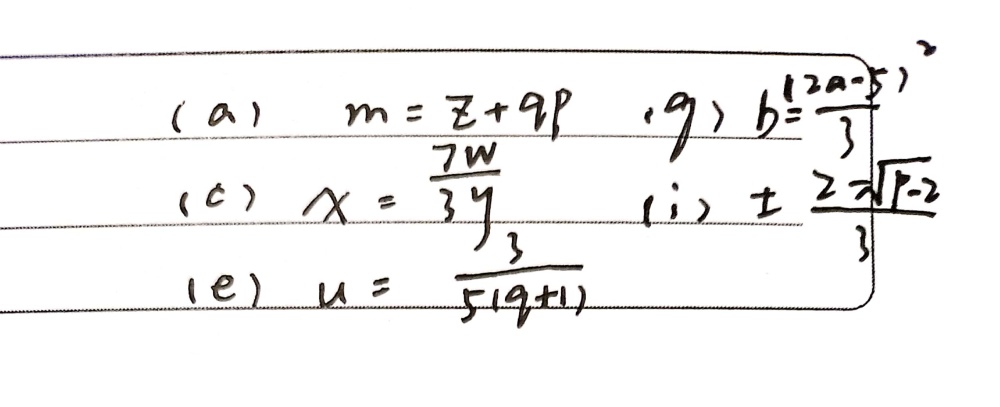 (a) m = z + qp (g) b = (2a-5)²/3
(c) x = 7w/3y (i) ± 2-√p-2/3
(e) u = 3/5(q+1)